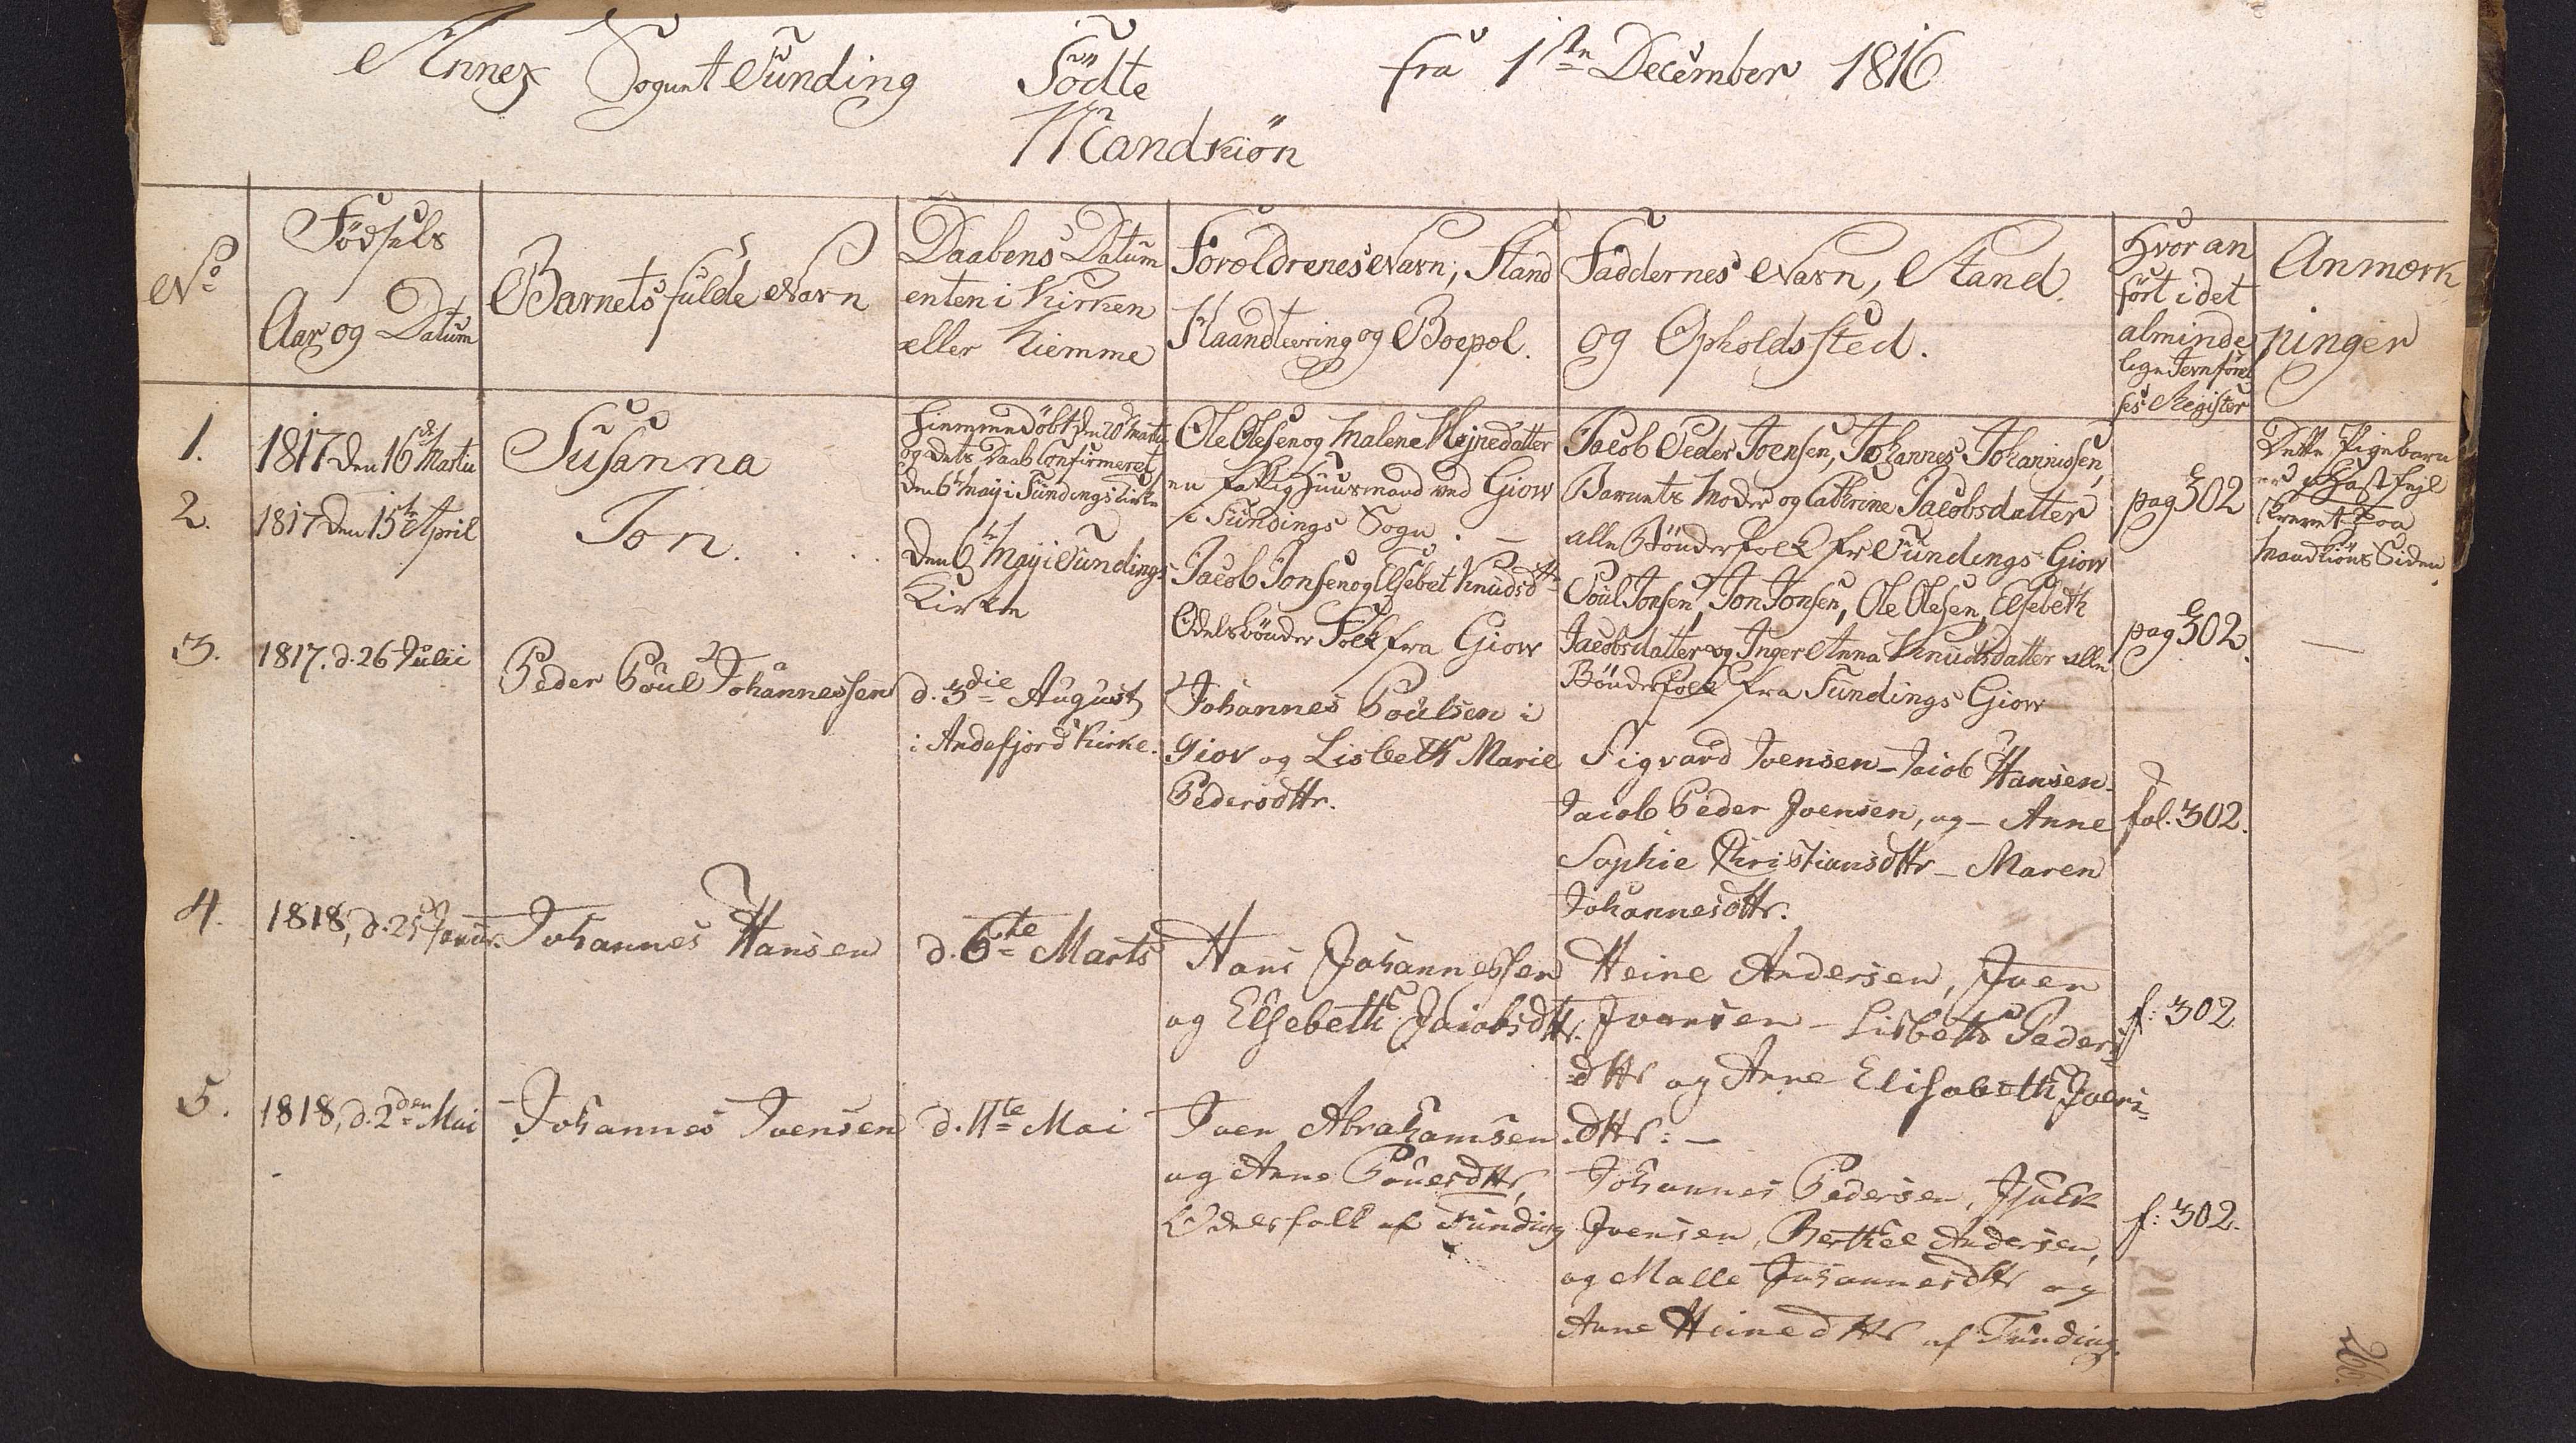 Annex Sognet Funding Födte fra 1ste December 1816
Mandkiön
No
Födsels
Aar og Datum
Barnets fulde Navn
Daabens Datum
enten i Kirken
eller Hiemme
Foroeldrenes Navn, Stand
Haandteering og Boepel.
Faddernes Navn, Stand
og Opholdssted.
Hvor an
fört i det
alminde
lige Jevnförel
ses Register
Anmoerk
ninger
1.
1817 den 16de Martii
Susanna
Hiemmedöbt den 20de Martii
og dets Daab Confirmeret
den 6te Maji i Fundings Kirke
Ole Olesen og Malene Hejnedatter
en fattig Huusmand ved Giow
i Fundings Sogn.
Jacob Peder Joensen, Johannes Johannissen,
Barnets Moder og Cathrine Jacobsdatter
alle Bönderfolk fr Fundings Giow
pag 302
Dette Pigebarn
er af Hast fejl
skrevet paa
Mandkiöns Siden.
2.
1817 den 15te April
Jon.
den 6te Maji i Fundings
Kirke
Jacob Jonsen og Elsebet Knudsdttr
Odelsbönder Folk fra Giow
Poul Jonsen, Jon Jonsen, Ole Olesen, Elsebeth
Jacobsdatter og Inger Anna Knudsdatter alle
Bönderfolk fra Fundings Giow
pag 302.
—
3.
1817. d. 26 Julii
Peder Poul Johannessen
d. 3die August
i Andafjord Kirke.
Johannes Poulsen i
Giov og Lisbeth Marie
Pedersdttr.
Sigvard Joensen - Jacob Hansen -
Jacob Peder Joensen, og - Anne
Sophie Christiansdttr - Maren
Johannesdttr.
fol. 302.
4.
1818, d. 25 Januar.
Johannes Hansen
d. 6te Marts
Hans Johannessen
og Elsebeth Jacobsdttr.
Heine Andersen, Joen
Joensen - Lisbeth Peders
dttr og Anne Elisabeth Joens-
dttr: -
f: 302
5.
1818, d. 2den Mai
Johannes Joensen
d. 11te Mai
Joen Abrahamsen
og Anne Pouesdttr,
Odelsfolk af Funding
Johannes Pedersen, Isack
Joensen, Berthel Andersen,
og Malle Johannesdttr og
Anne Heinedttr af Funding.
f: 302.